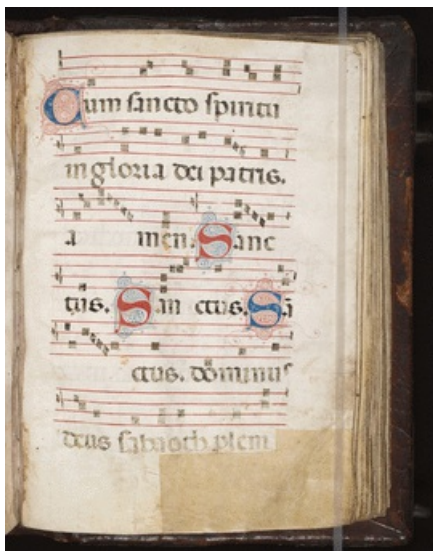 Cum sancto spiritu
in gloria dei patris.
a men. Sanc
tus. San ctus. Sā
ctus. dominus
deus sabaoth pleni